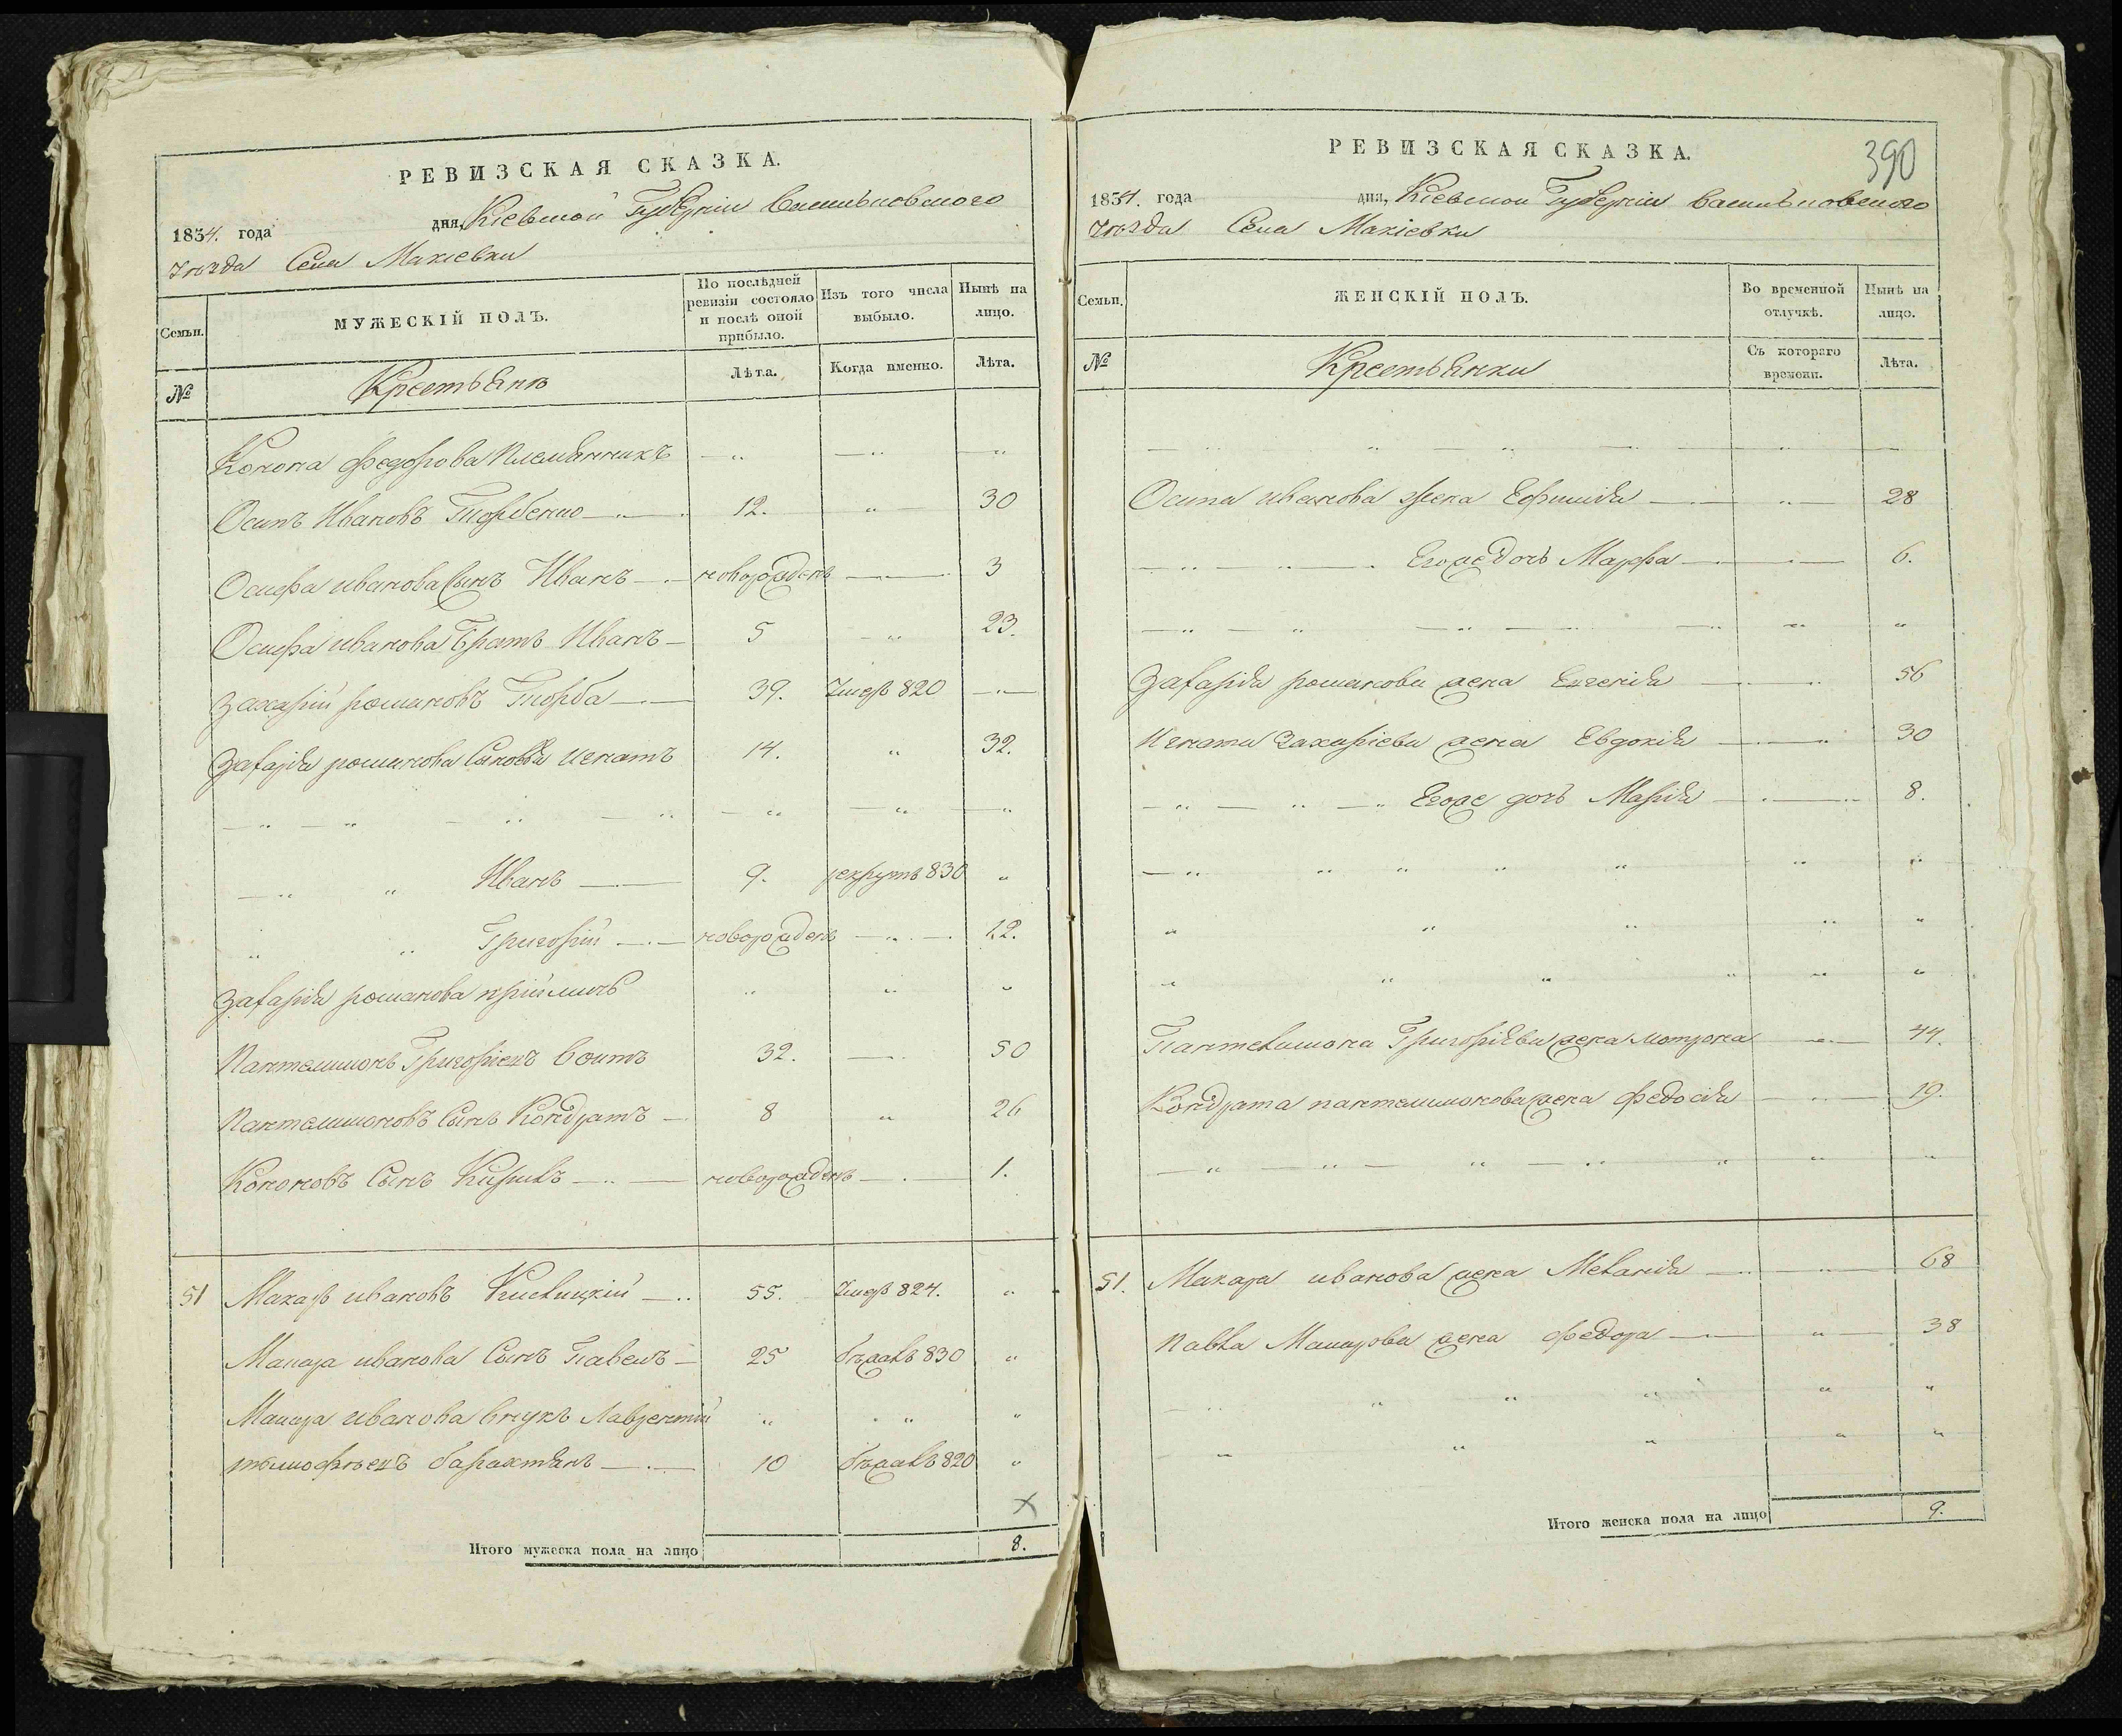 РЕВИЗСКАЯ СКАЗКА.
1834. года дня, Кіевской Губерніи Васильковского
Уѣзда Села Макіевки
Семьи. МУЖЕСКІЙ ПОЛЪ. По послѣдней ревизіи состояло и послѣ оной прибыло. Изъ того числа выбыло. Нынѣ на лицо.
№ Крестьянѣ Лѣта. Когда именно. Лѣта.
Конона Федорова племянникъ
Осипъ Ивановъ Торбенко 12. 30
Осифа иванова Сынъ Иванъ новорожденъ 3
Осифа иванова Братъ Иванъ 5 23.
Захарій романовъ Торба 39. Умеръ 820
Захарія романова Сыновья игнатъ 14. 32.
Иванъ 9. рекрутъ 830
Григорій новорожденъ 12.
Захарія романова пріймичъ
Пантелимонъ Григоріевъ Воитъ 32. 50
Пантелимоновъ Сынъ Кондратъ 8 26
Кононовъ Сынъ Кирилъ новорожденъ 1.
51 Макаръ ивановъ 55. Умеръ 824.
Макара иванова Сынъ Павелъ 25 бѣжалъ 830
Макара иванова внукъ Лаврентій
тымофѣевъ барахтянъ 10 бѣжалъ 820
Итого мужеска пола на лицо 8.
390
РЕВИЗСКАЯ СКАЗКА.
1834. года дня, Кіевской Губерніи Васильковского
Уѣзда Села Макіевки
Семьи. ЖЕНСКІЙ ПОЛЪ. Во временной отлучкѣ. Нынѣ на лицо.
№ Крестьянки Съ котораго времени. Лѣта.
Осипа иванова жена Ефимія 28
Егоже дочь Марфа 6.
Захарія романова жена Евгенія 56
Игната Захаріева жена Евдокія 30
Егоже дочь Марія 8.
Пантелимона Григоріева жена мотрона 44.
Кондрата пантелимонова жена федосія 19.
51. Макара иванова жена Меланія 68
Павла Макарова жена федора 38
Итого женска пола на лицо 9.